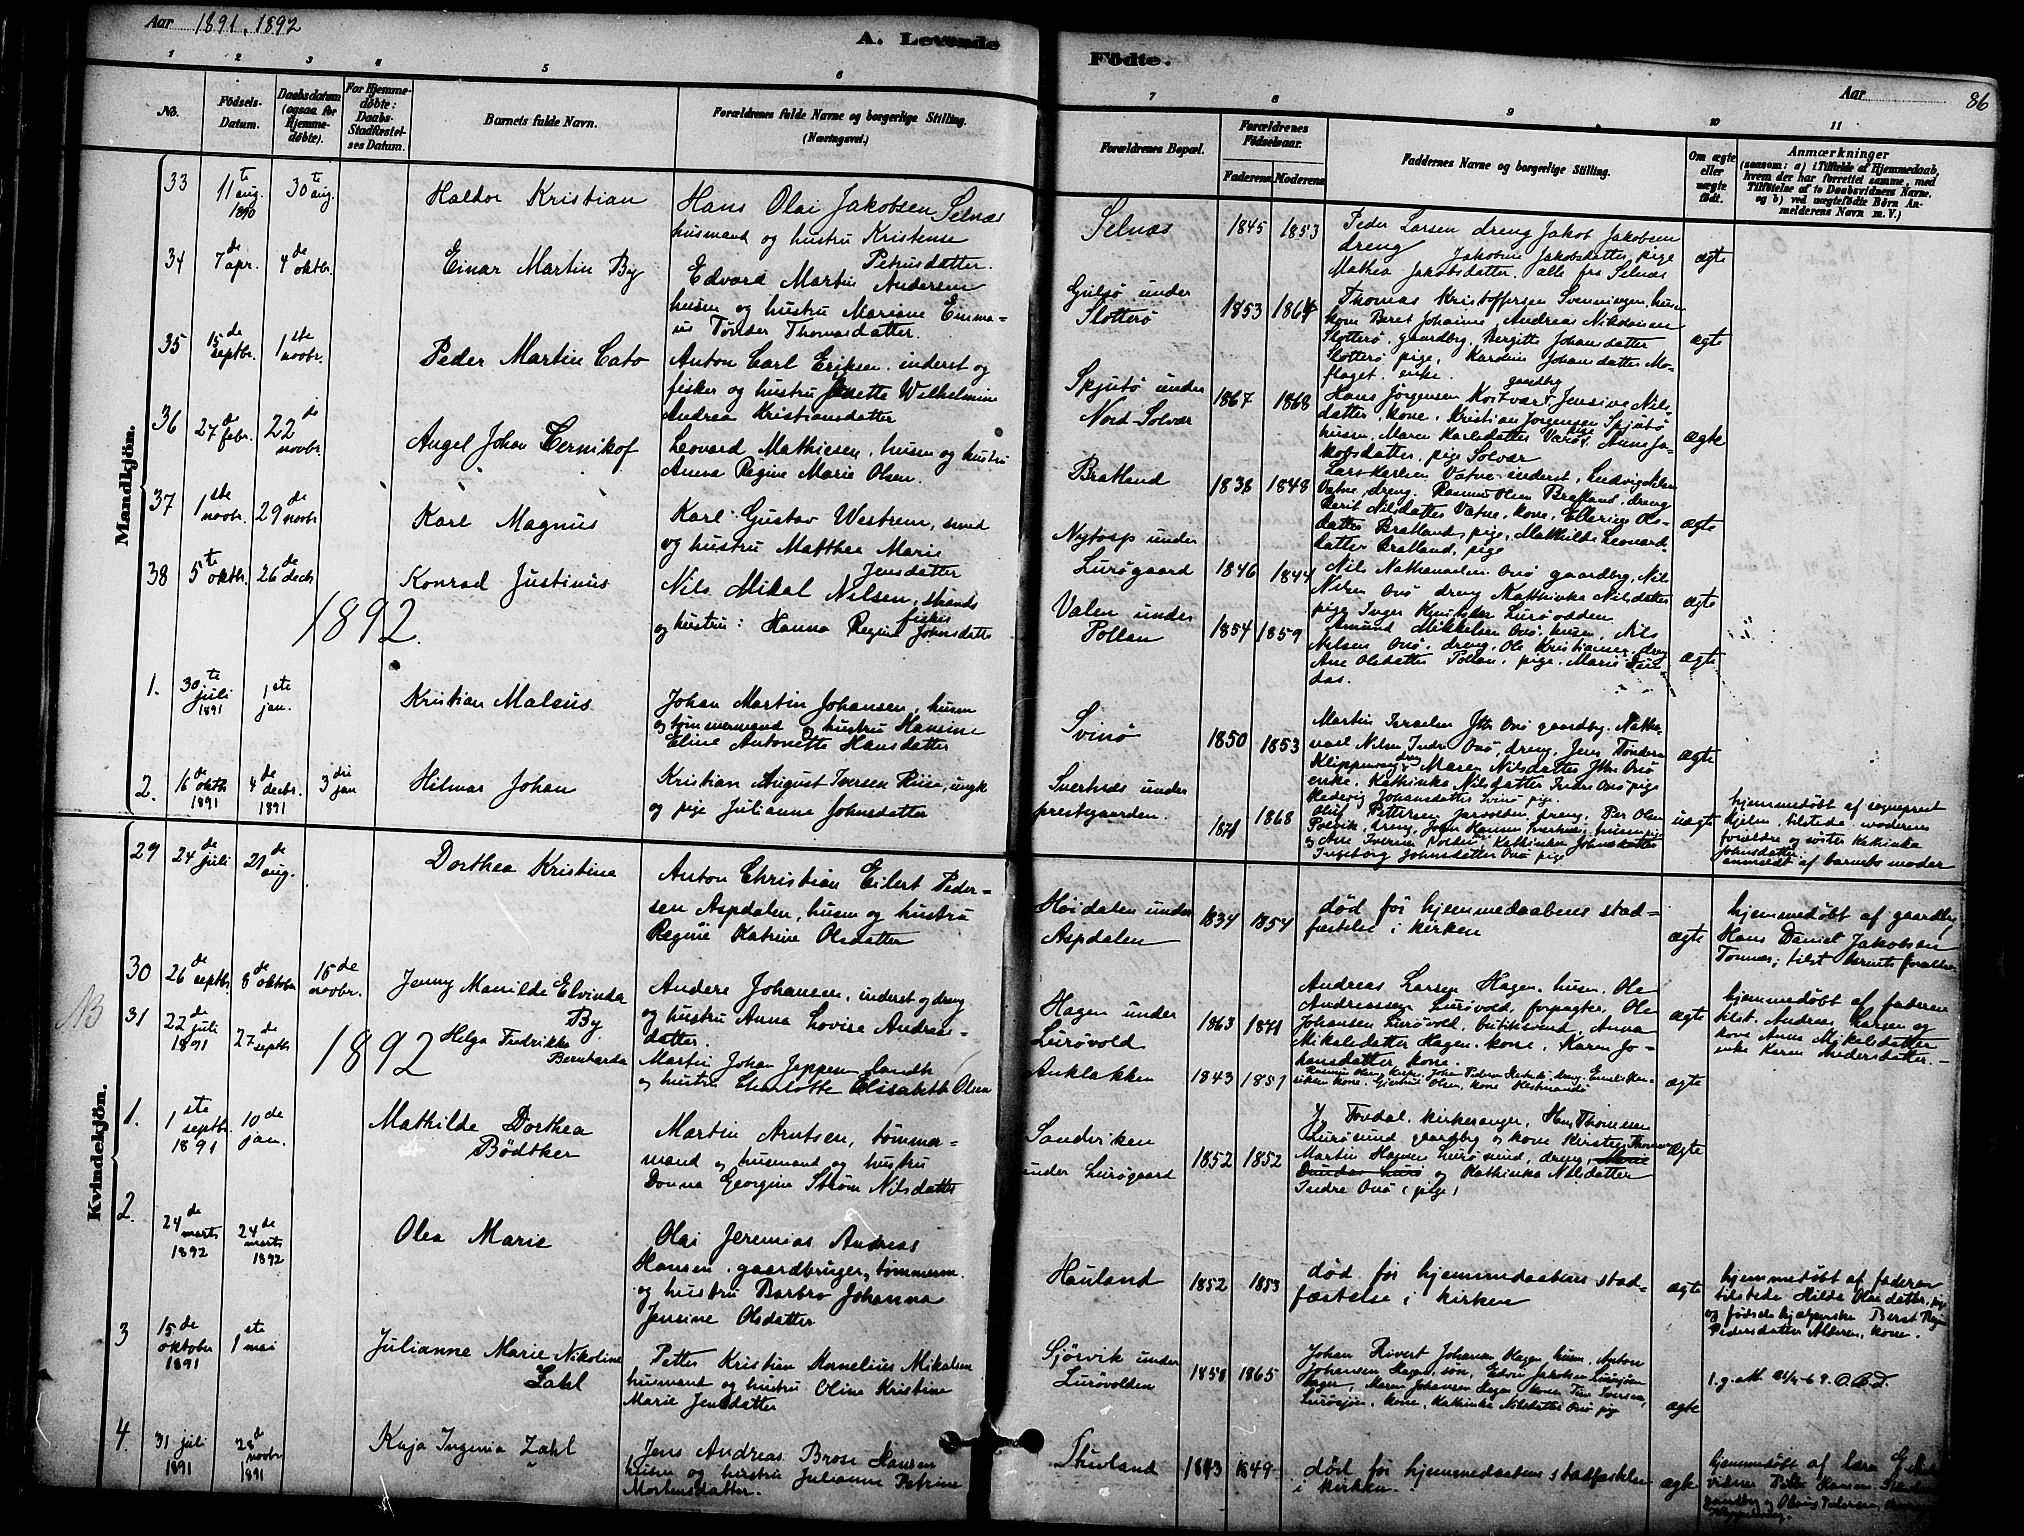 Aar 1891, 1892
A. Levende
Födte.
Aar 86
1 2 3 4 5 6
7 8 9 10 11
No.
Födsels-
Datum.
Daabsdatum
(ogsaa for
Hjemme-
døbte).
For Hjemme-
døbte:
Daabs-
Stadfæstel-
ses Datum.
Barnets fulde Navn.
Forældrenes fulde Navne og borgerlige Stilling.
(Næringsvei.)
Forældrenes Bopæl.
Forældrenes
Födselsaar.
Faderens Moderens
Faddernes Navne og borgerlige Stilling.
Om ægte
eller
uægte
födt.
Anmærkninger
(saasom: a) i Tilfælde af Hjemmedaab,
hvem der har forrettet samme, med
Tilföielse af to Daabsvidners Navne.
og b) ved uægtefödte Börn An-
melderens Navn m. V.)
Mandkjön.
33
11te aug. 1890
30te aug.
Haldor Kristian
Hans Olai Jakobsen Selnæs
husmand og hustru Kristense
Petrusdatter.
Selnæs
1845 1853
Peder Larsen dreng Jakob Jakobsen
dreng Jakobine Jakobsdatter pige
Mathea Jakobsdatter. alle fra Selnæs
ægte
34
7de apr.
4de oktbr.
Einar Martin By
Edvard Martin Andersen
husm og hustru Mariane Emma-
us Tønder Thomasdatter.
Gulsø under
Slotterø
1853 1864
Thomas Kristoffersen Svenningen, husm
kone Beret Johanne, Andreas Nilsdansen
Slotterø, gaardbr. Bergitte Johansdatter
Slotterø pige, Karoline Johansdatter Mo-
flaget. enke.
ægte
35
15de septbr.
1ste novbr.
Peder Martin Cato
Anton Carl Eriksen. inderst og
fisker og hustru Jenette Wilhelmine
Andrea Kristiansdatter
Skjutø under
Nord Solvær
1867 1868
Hans Jørgensen Kvitvær gaardbr Jensine Nils-
datter, kone, Kristian Jørgensen Skjutø
husm, Maren Karlsdatter Varø pige, Anne Ja-
kobsdatter, pige Solvær
ægte
36
27de febr.
22de novbr.
Angel Johan Ternikof
Leonard Mathiesen, husm og hustru
Anna Regine Marie Olsen.
Bratland
1838 1848
Lars Karlsen Vatne inderst, Ludvig Nilsen
Vatne dreng. Rasmus Olsen Bratland, dreng
Berit Nilsdatter Vatne, kone, Ellerine Ols-
datter Bratland, pige, Mathilde Leonard-
datter Bratland, pige
ægte
37
1ste novbr
29de novbr
Karl Magnus
Karl Gustav Westrem, smed
og hustru Matthea Marie
Jensdatter
Nytorp under
Lurøgaard
1846 1844
Nils Nathanaelsen Onø gaardbr, Nils
Nilsen Onø dreng Kathinka Nilsdatter
pige Inger Lurøvolden
ægte
38
5te oktbr.
26de decbr
Konrad Justinus
Nils Mikal Nilsen, strands
fisker
og hustru: Hanna Regine Johnsdatter
Valen under
Pollen
1854 1859
Amund Mikkelsen Onø, husm, Nils
Nilsen Onø, dreng, Ole Kristianser, dreng
Ane Olsdatter Pollen, pige. Marie Dun-
das.
ægte
1892.
1.
30te juli 1891
1ste jan.
Kristian Maleus
Johan Martin Johansen, husm
og tømmermand og hustru Hansine
Eline Antonette Hansdatter
Svinø
1850 1853
Martin Israelsen Ytre Onø gaardbr. Natha-
nael Nilsen Indre Onø, dreng, Jens Tønder
Klippenvaag dreng Maren Nilsdatter Ytre Onø
enke. Kathinka Nilsdatter Indre Onø pige
Hedevig Johansdatter Svinø pige.
ægte
2.
16de oktbr 1891
4de decbr. 1891
3die jan
Hilmar Johan
Kristian August Iversen Riise, ungk
og pige Julianne Johnsdatter
Sverhus under
prestegaarden.
1871 1868
Oluf Pettersen dreng, Per Olsen
dreng, John Hansen husm
og Ane Iversen Kathinka Johnsdatter
Ingeborg Johnsdatter Onø pige
uægte
hjemmedøbt af sogneprest
Hjelm. tilstede. moderens
forældre og søster Kathinka
Johnsdatter
anmeldt af barnets moder
Kvindekjön.
29
24de juli
21de aug.
Dorthea Kristina
Anton Christian Eilert Peder-
sen Aspdalen, husm og hustru
Regine Katrine Olsdatter
Høidalen under
Aspdalen
1834 1854
død før hjemmedaabens stad-
fæstelse i kirken
ægte
hjemmedøbt af gaardbr,
Hans Daniel Jakobsen
Tonnes; tilst barnets forældre.
30
26de septbr.
8de oktober
15de novbr.
Jenny Manilde Elvinda
By
Anders Johansen, inderst og dreng
og hustru Anna Lovise Andreas-
datter.
Hagen under
Lurøvold
1863 1871
Andreas Larsen Hagen, husm. Ole
Andreassen Lurøvold, forpagter, Ole
Johansen Lurøvold, butiksvend, Anna
Mikalsdatter Hagen. kone. Karen Jo-
hansdatter kone.
ægte
hjemmedøbt af faderen
tilst. Andreas Larsen og
kone Anne Mikalsdatter
enke Karen Andersdatter.
NB
31
22de juli 1891
27de septbr
Helga Fredrikke
Bernharda
Martin Johan Jeppesen landh
og hustru Charlotte Elisabeth Olsen
Anklakken
1843 1851
kone. Gjertrud Olsen, kone Hestmandø
ægte
1892
1.
1ste septbr 1891
10de jan.
Mathilde Dorthea
Bödtker
Martin Arntsen, tømmer-
mand og husmand og hustru
Donna Georgine Strøm Nilsdatter
Sandviken
under Lurøgaard
1852 1852
J Tovdal, kirkesanger, Hans Thomsen
Lurøsund gaardbr og kone Kirsten Thomsen
Martin Hansen Lurøsund, dreng, Marie
Dundas Lurø og Kathinka Nilsdatter
Indre Onø (pige)
ægte
2.
24de marts 1892
24de marts 1892
Olea Marie
Olai Jeremias Andreas
Hansen. gaardbruger, tømmerm.
og hustru Barbro Johanna
Jensine Olsdatter
Hauland
1852 1853
død før hjemmedaabens stad-
fæstelse i kirken
ægte
hjemmedøbt af faderen
tilstede Hilde Olaidatter, pige
og fødselshjælperske Beret Regine
Pedersdatter Alderen, kone.
3
15de oktober 1891
1ste mai
Julianne Marie Nikoline
Zahl
Petter Kristian Kornelius Mikalsen
husmand og hustru Oline Kristine
Marie Jensdatter
Sjørsvik under
Lurøvolden
1858 1865
Johan Rivert Johansen Hagen husm, Anton
Johansen Hagen, søn, Edvin Jakobsen Lurøsjøen
Hagen, Maren Johansen Hagen kone, Tine Iversen
Lurøsjøen, kone, Kathinka Nilsdatter Onø pig
ægte
4.
31 juli 1891
28de novbr 1891
Kaja Ingenia Zahl
Jens Andreas Brose Hansen
husm og hustru Julianne Petrine
Mortensdatter.
Thuvland
1843 1849
død før hjemmedaabens stadfæstelse
i kirken.
ægte
hjemmedøbt af lærer
vidner Petter Hansen
gaardbr og Olaus Pedersen,